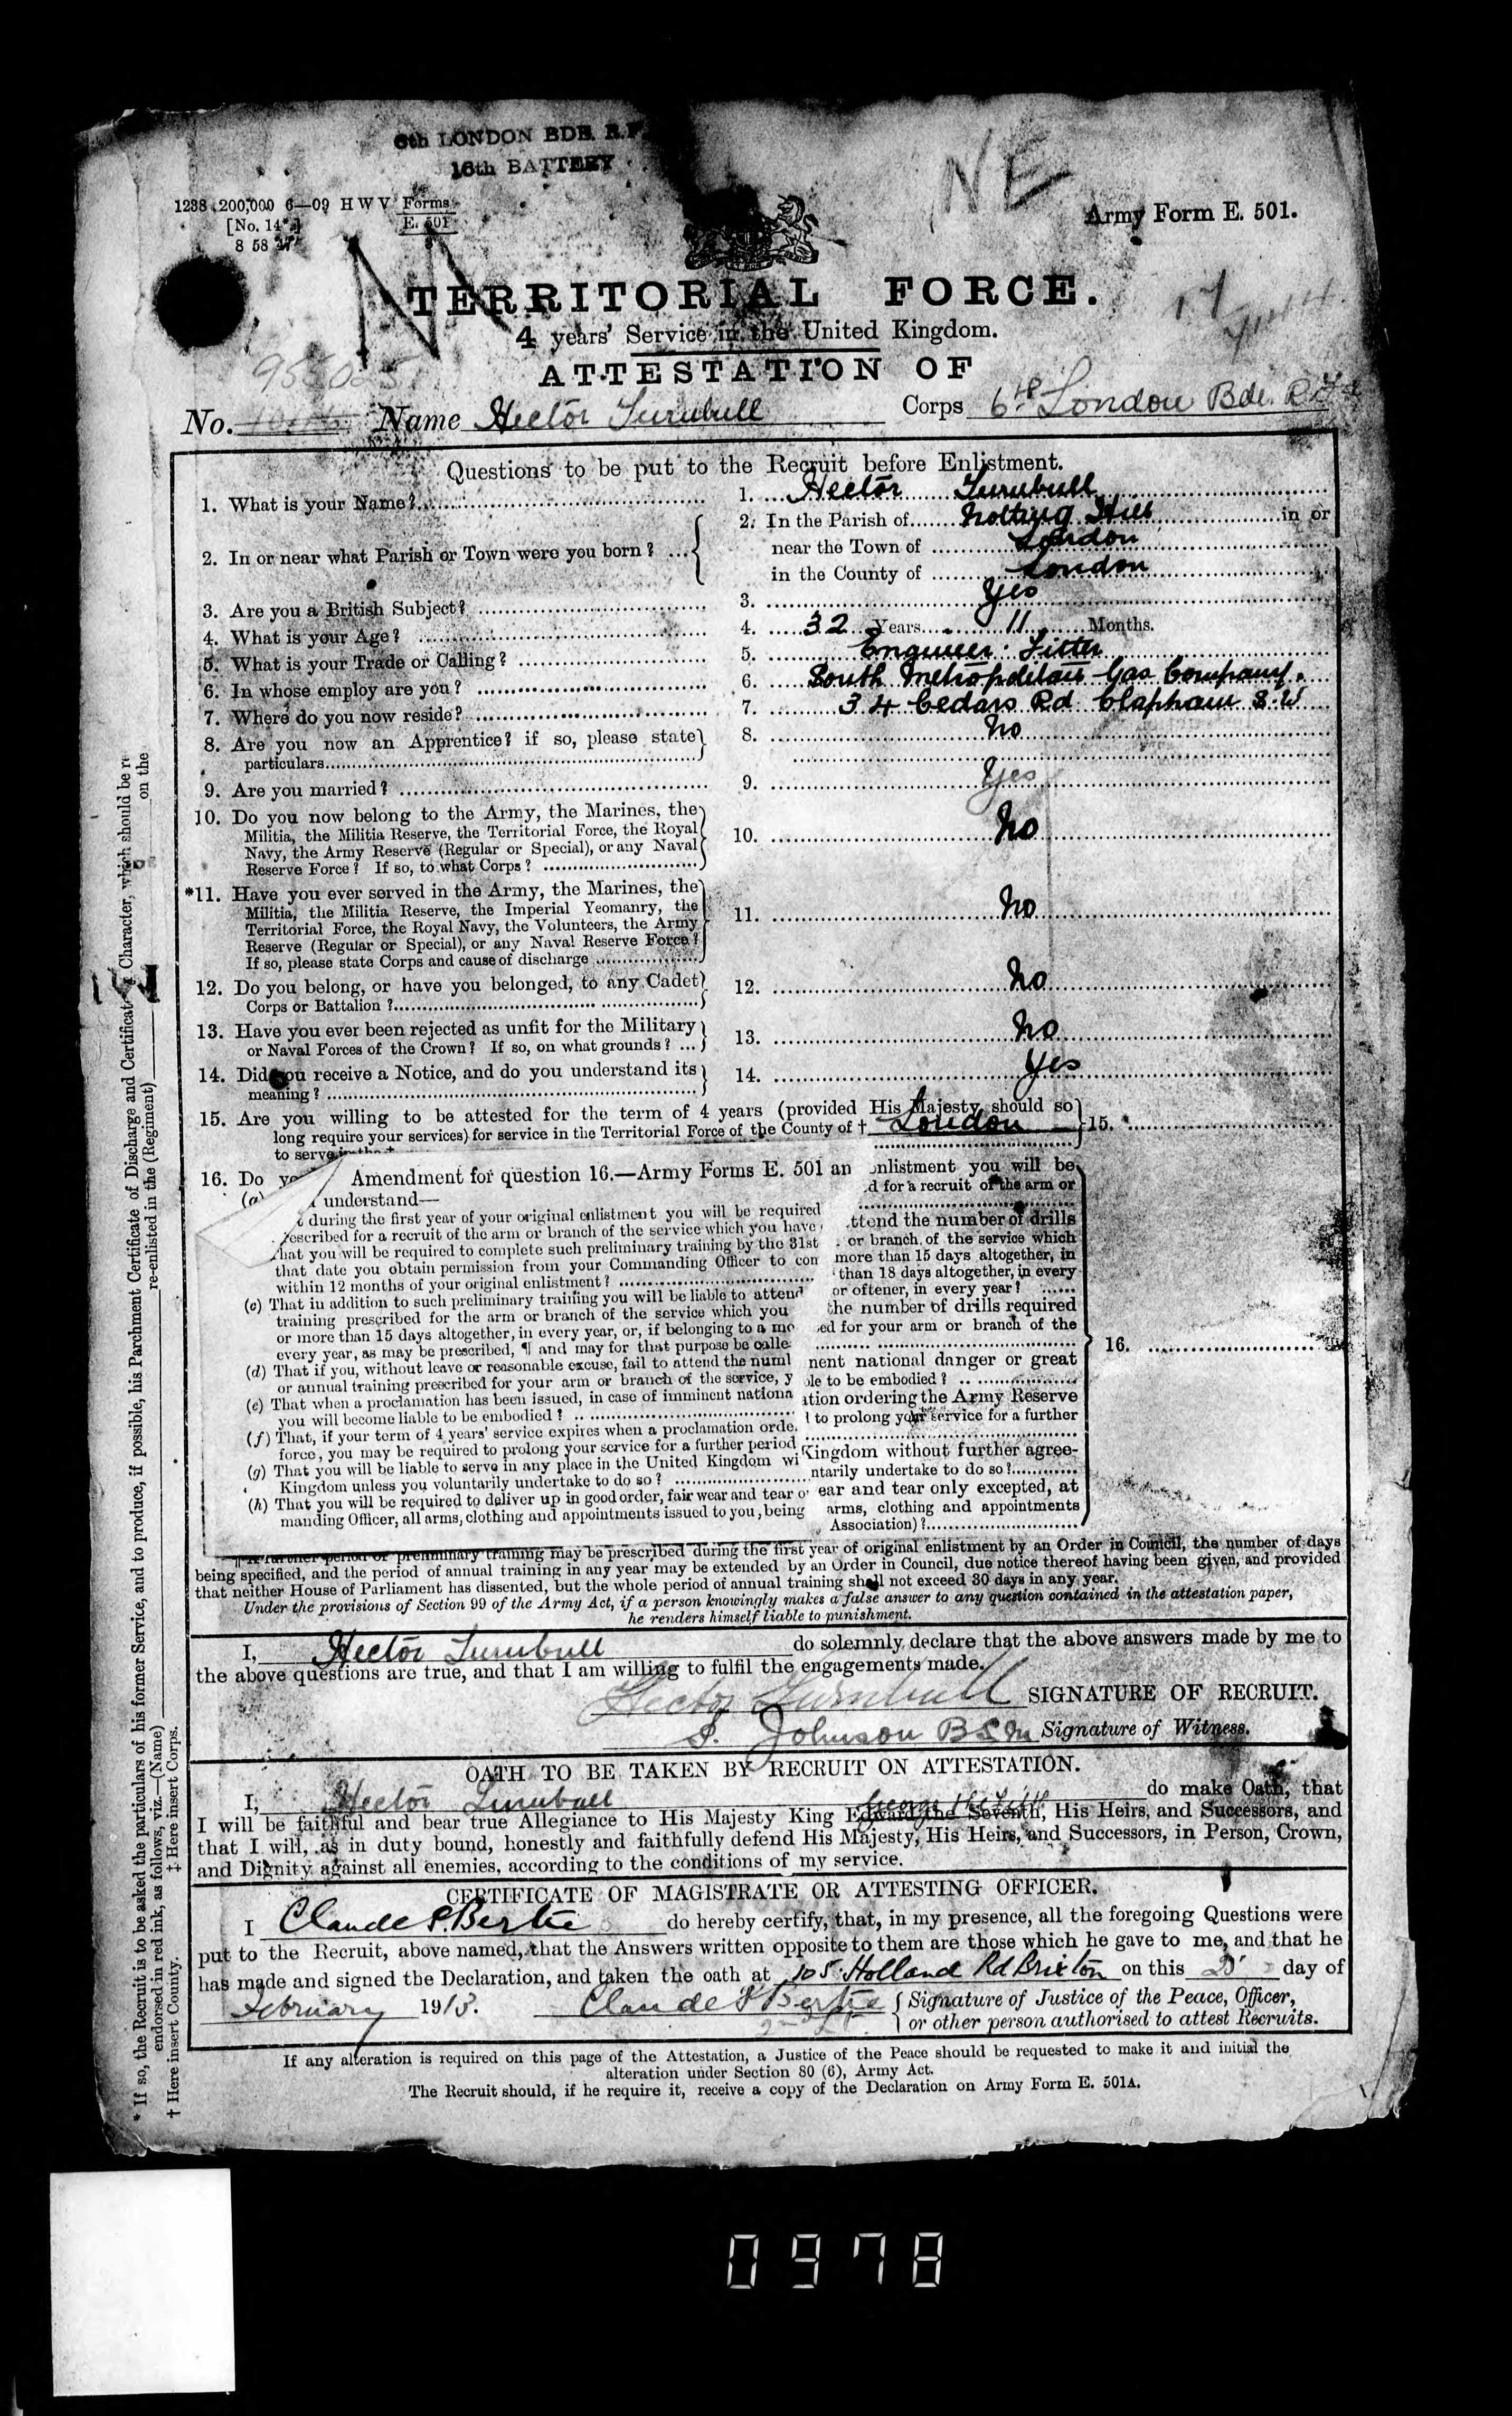 6th LONDON BDE. R.F.
16th BATTERY
NE
1238 200,000 6—09 H W V Forms
[No. 14 ] E. 501
8 58
Army Form E. 501.
TERRITORIAL FORCE.
4 years' Service in the United Kingdom.
ATTESTATION OF
955025
No. Name Hector Turnbull Corps 6th London Bde. R.F.A
Questions to be put to the Recruit before Enlistment.
1. What is your Name? 1. Hector Turnbull
2. In or near what Parish or Town were you born? 2. In the Parish of Notting Hill in or
near the Town of London
in the County of London
3. Are you a British Subject? 3. Yes
4. What is your Age? 4. 32 Years 11 Months.
5. What is your Trade or Calling? 5. Engineer: Fitter
6. In whose employ are you? 6. South Metropolitan Gas Company.
7. Where do you now reside? 7. 34 Cedars Rd Clapham S.W
8. Are you now an Apprentice? if so, please state 8. No
particulars
9. Are you married? 9. Yes
10. Do you now belong to the Army, the Marines, the
Militia, the Militia Reserve, the Territorial Force, the Royal
Navy, the Army Reserve (Regular or Special), or any Naval 10. No
Reserve Force? If so, to what Corps?
*11. Have you ever served in the Army, the Marines, the
Militia, the Militia Reserve, the Imperial Yeomanry, the
Territorial Force, the Royal Navy, the Volunteers, the Army 11. No
Reserve (Regular or Special), or any Naval Reserve Force?
If so, please state Corps and cause of discharge
12. Do you belong, or have you belonged, to any Cadet 12. No
Corps or Battalion?
13. Have you ever been rejected as unfit for the Military 13. No
or Naval Forces of the Crown? If so, on what grounds? ...
14. Did you receive a Notice, and do you understand its 14. Yes
meaning?
15. Are you willing to be attested for the term of 4 years (provided His Majesty should so
long require your services) for service in the Territorial Force of the County of † London 15.
to serve in the ‡
16. Do yo Amendment for question 16.—Army Forms E. 501 an nlistment you will be
(a) understand— d for a recruit of the arm or
during the first year of your original enlistment you will be required
rescribed for a recruit of the arm or branch of the service which you have ttend the number of drills
hat you will be required to complete such preliminary training by the 31st or branch of the service which
that date you obtain permission from your Commanding Officer to com more than 15 days altogether, in
within 12 months of your original enlistment? than 18 days altogether, in every
(c) That in addition to such preliminary training you will be liable to attend or oftener, in every year?
training prescribed for the arm or branch of the service which you the number of drills required
or more than 15 days altogether, in every year, or, if belonging to a mo ed for your arm or branch of the
every year, as may be prescribed, ¶ and may for that purpose be calle
(d) That if you, without leave or reasonable excuse, fail to attend the numl nent national danger or great
or annual training prescribed for your arm or branch of the service, y ble to be embodied?
(e) That when a proclamation has been issued, in case of imminent nationa ation ordering the Army Reserve
you will become liable to be embodied? to prolong your service for a further
(f) That, if your term of 4 years' service expires when a proclamation orde.
force, you may be required to prolong your service for a further period Kingdom without further agree-
(g) That you will be liable to serve in any place in the United Kingdom wi ntarily undertake to do so?
Kingdom unless you voluntarily undertake to do so? ear and tear only excepted, at
(h) That you will be required to deliver up in good order, fair wear and tear o arms, clothing and appointments
manding Officer, all arms, clothing and appointments issued to you, being Association)?
16.
¶ A further period of preliminary training may be prescribed during the first year of original enlistment by an Order in Council, the number of days
being specified, and the period of annual training in any year may be extended by an Order in Council, due notice thereof having been given, and provided
that neither House of Parliament has dissented, but the whole period of annual training shall not exceed 30 days in any year.
Under the provisions of Section 99 of the Army Act, if a person knowingly makes a false answer to any question contained in the attestation paper,
he renders himself liable to punishment.
I, Hector Turnbull do solemnly declare that the above answers made by me to
the above questions are true, and that I am willing to fulfil the engagements made.
Hector Turnbull SIGNATURE OF RECRUIT.
S. Johnson BSM Signature of Witness.
OATH TO BE TAKEN BY RECRUIT ON ATTESTATION.
I, Hector Turnbull do make Oath, that
George the Fifth
I will be faithful and bear true Allegiance to His Majesty King Edward the Seventh, His Heirs, and Successors, and
that I will, as in duty bound, honestly and faithfully defend His Majesty, His Heirs, and Successors, in Person, Crown,
and Dignity against all enemies, according to the conditions of my service.
CERTIFICATE OF MAGISTRATE OR ATTESTING OFFICER.
I Claude P. Bertie do hereby certify, that, in my presence, all the foregoing Questions were
put to the Recruit, above named, that the Answers written opposite to them are those which he gave to me, and that he
has made and signed the Declaration, and taken the oath at 105 Holland Rd Brixton on this 25 day of
February 1913. Claude P Bertie Signature of Justice of the Peace, Officer,
2nd Lt. or other person authorised to attest Recruits.
If any alteration is required on this page of the Attestation, a Justice of the Peace should be requested to make it and initial the
alteration under Section 80 (6), Army Act.
The Recruit should, if he require it, receive a copy of the Declaration on Army Form E. 501A.
* If so, the Recruit is to be asked the particulars of his former Service, and to produce, if possible, his Parchment Certificate of Discharge and Certificate of Character, which should be re
endorsed in red ink, as follows, viz.—(Name) re-enlisted in the (Regiment) on the
† Here insert County. ‡ Here insert Corps.
0978